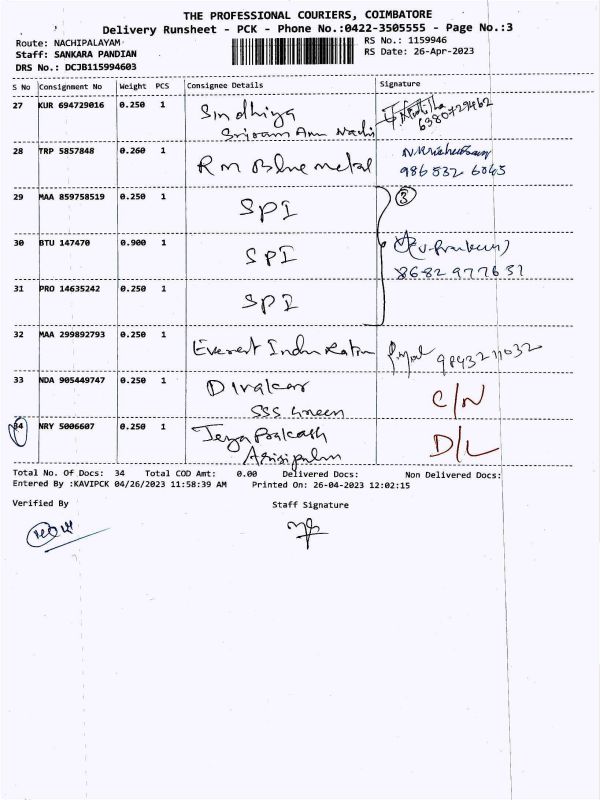 THE PROFESSIONAL COURIERS, COIMBATORE
Delivery Runsheet - PCK - Phone No.:0422-3505555 - Page No.:3
Route: NACHIPALAYAM
RS No.: 1159946
Staff: SANKARA PANDIAN
RS Date: 26-Apr-2023
DRS No.: DCJB115994603
S No Consignment No Weight PCS Consignee Details Signature
27 KUR 694729016 0.250 1 Sindhiya
6380729462
28 TRP 5857848 0.260 1 Rm Blue metal
29 MAA 859758519 0.250 1 SPI 3
30 BTU 147470 0.900 1 SPI
8682977631
31 PRO 14635242 0.250 1 SPI
32 MAA 299892793 0.250 1 Everest 9843211032
33 NDA 905449747 0.250 1 Divakar C/N
SSS Green
34 NRY 5006607 0.250 1 Jeya Prakash D/L
Total No. Of Docs: 34 Total COD Amt: 0.00 Delivered Docs: Non Delivered Docs:
Entered By :KAVIPCK 04/26/2023 11:58:39 AM Printed On: 26-04-2023 12:02:15
Verified By Staff Signature